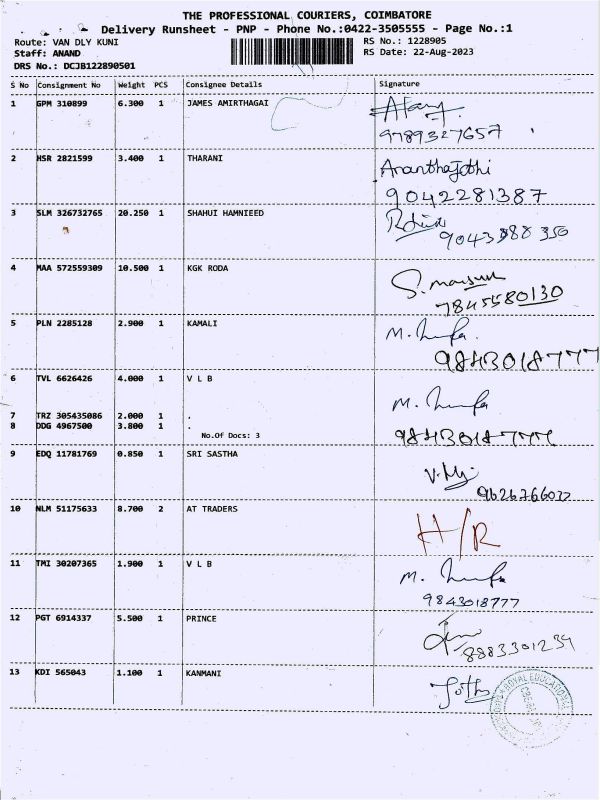 THE PROFESSIONAL COURIERS, COIMBATORE
Delivery Runsheet - PNP - Phone No.:0422-3505555 - Page No.:1
Route: VAN DLY KUNI RS No.: 1228905
Staff: ANAND RS Date: 22-Aug-2023
DRS No.: DCJB122890501
S No Consignment No Weight PCS Consignee Details Signature
1 GPM 310899 6.300 1 JAMES AMIRTHAGAI
9789327657
2 HSR 2821599 3.400 1 THARANI Ananthajothi
9042281387
3 SLM 326732765 20.250 1 SHAHUI HAMNIEED
4 MAA 572559309 10.500 1 KGK RODA
7845580130
5 PLN 2285128 2.900 1 KAMALI M.
9843018777
6 TVL 6626426 4.000 1 V L B M.
7 TRZ 305435086 2.000 1 .
8 DDG 4967500 3.800 1 .
No.Of Docs: 3 9843018777
9 EDQ 11781769 0.850 1 SRI SASTHA
10 NLM 51175633 8.700 2 AT TRADERS H/R
11 TMI 30207365 1.900 1 V L B M.
9843018777
12 PGT 6914337 5.500 1 PRINCE
8883301234
13 KDI 565043 1.100 1 KANMANI
ROYAL EDUCATIONAL